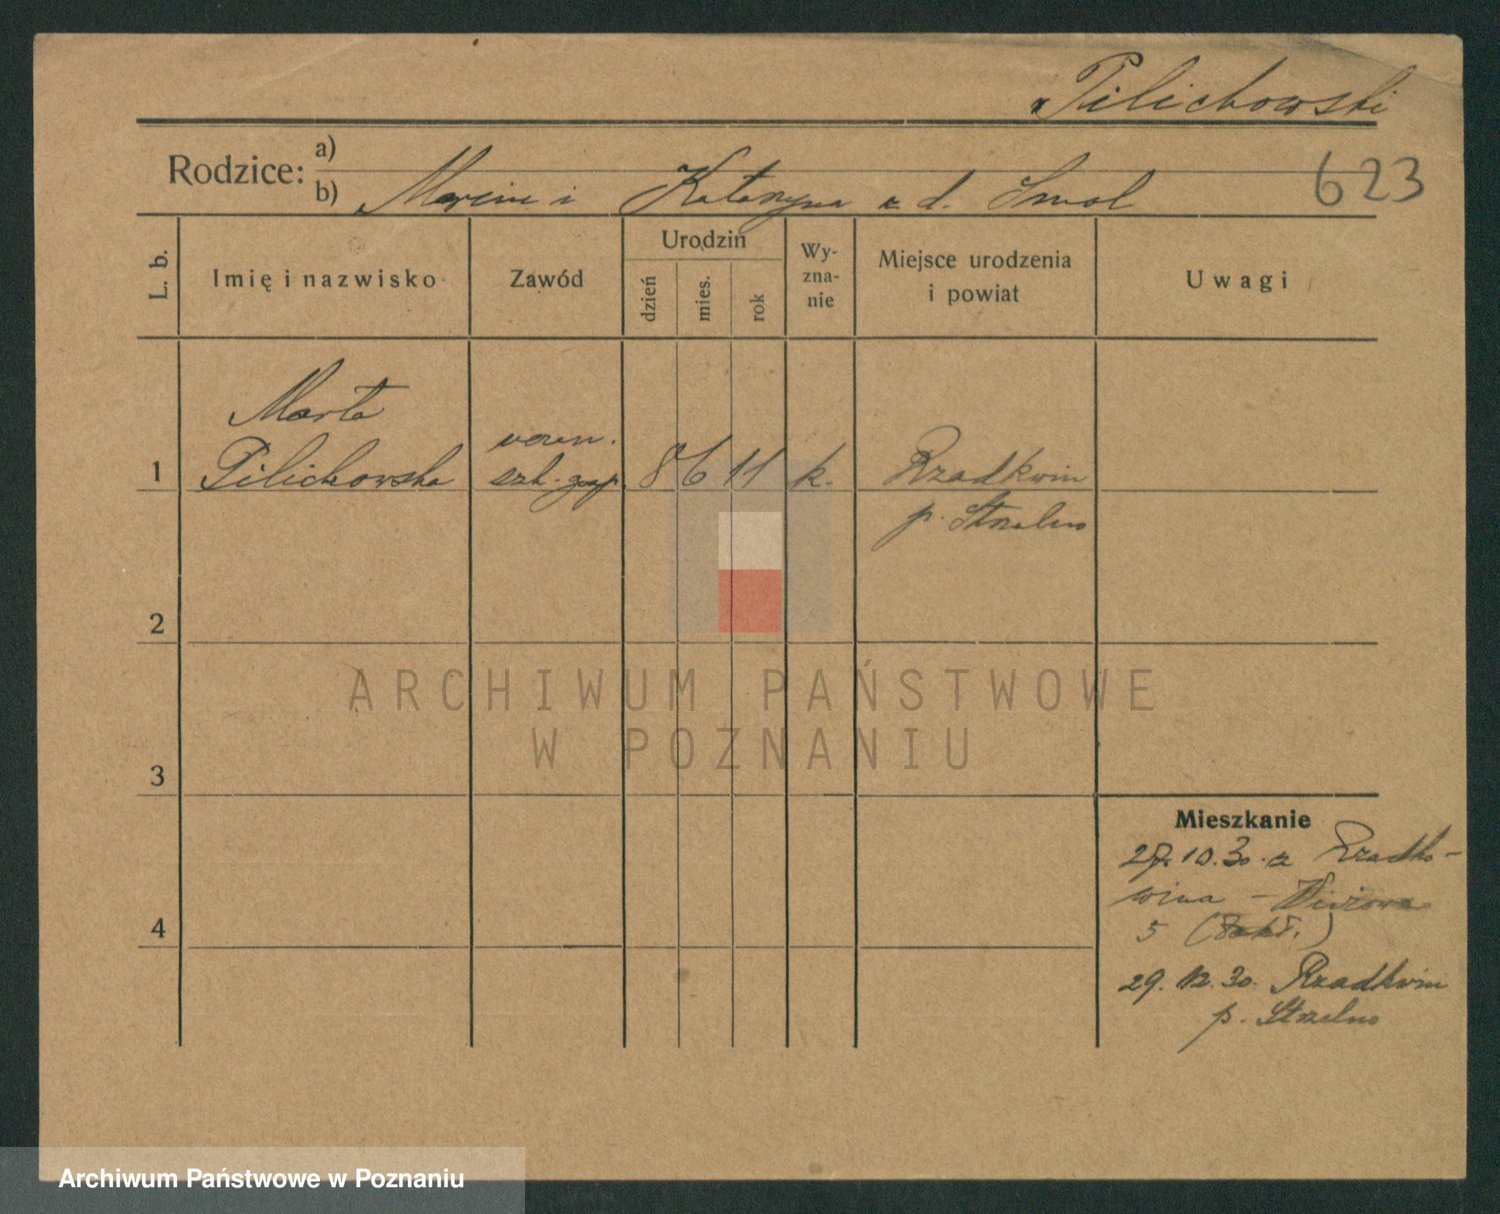 Pilichowski
Rodzice: a)
b) Marcin i Katarzyna z d. Smol
623
L. b.
Imię i nazwisko
Zawód
Urodzin
dzień
mies.
rok
Wy-
zna-
nie
Miejsce urodzenia
i powiat
Uwagi
1
Marta
Pilichowska
uczen.
szk. gosp.
8 6 11 k.
Rzadkwin
p. Strzelno
2
3
4
Mieszkanie
27.10.30 z Rzadko-
wina -
5
29.12.30. Rzadkwin
p. Strzelno
ARCHIWUM PAŃSTWOWE
W POZNANIU
Archiwum Państwowe w Poznaniu